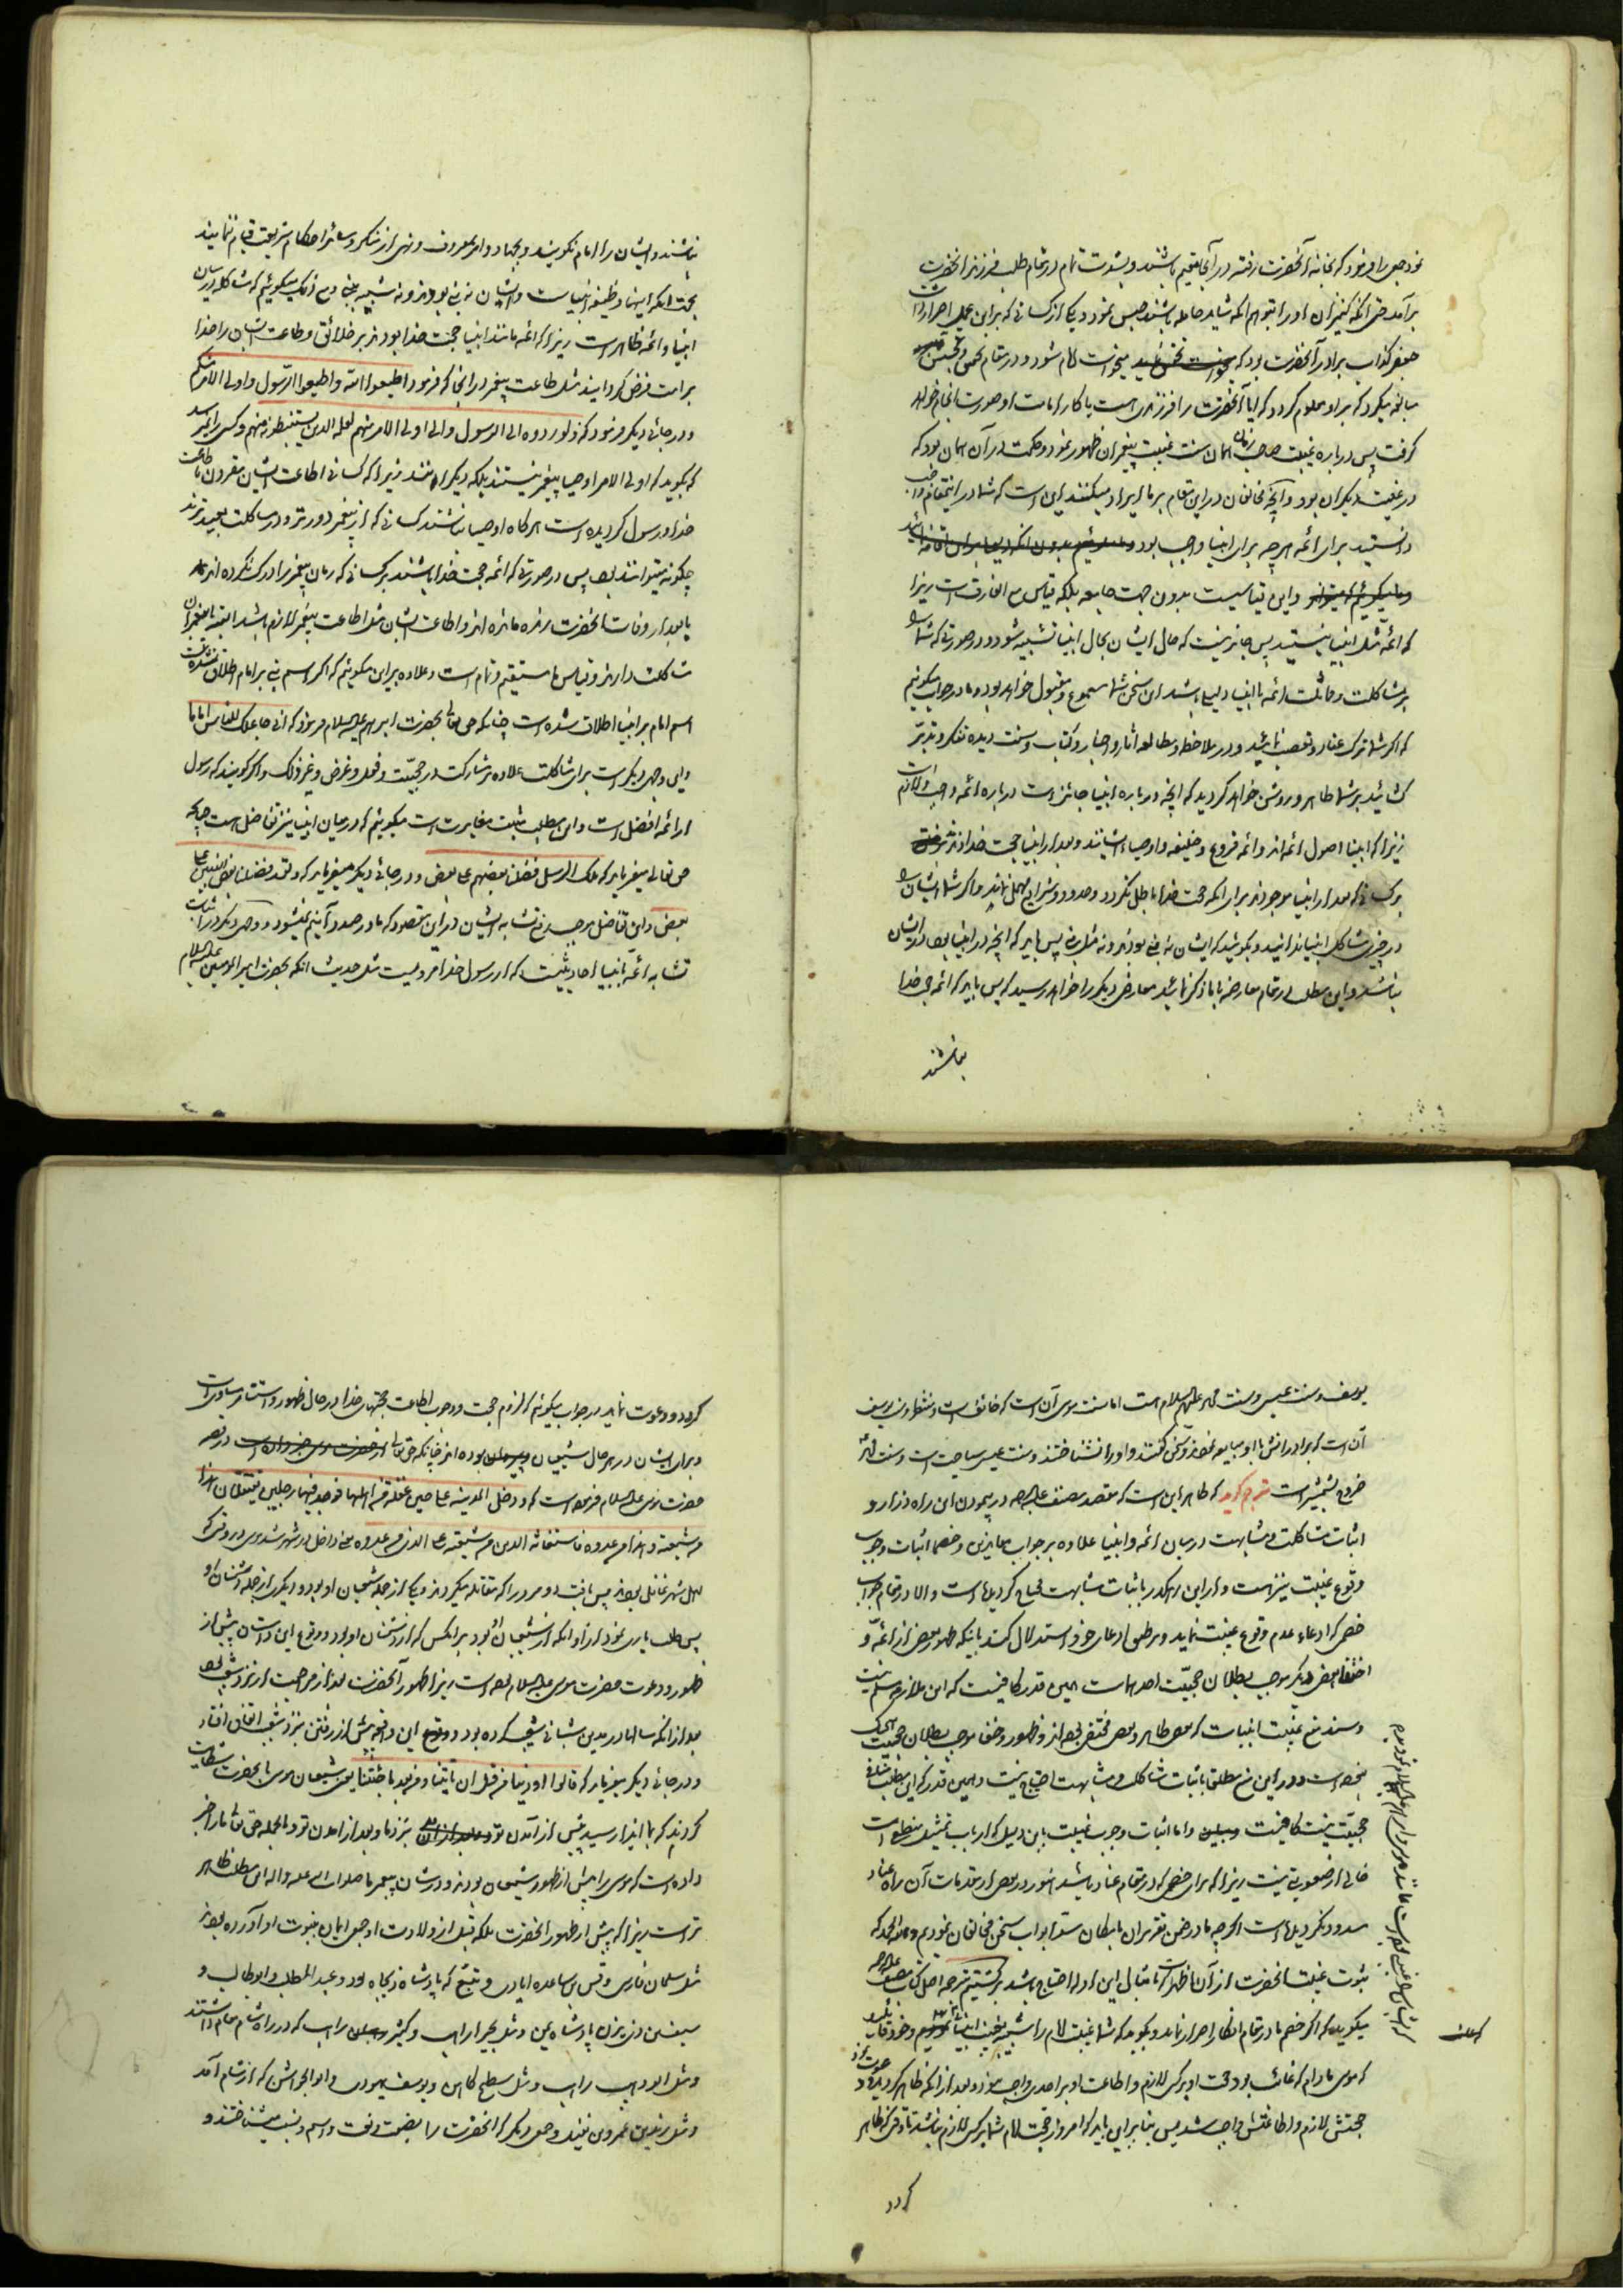 نمود جمعی را فرمود که بخانه آنحضرت رفته در آنجا مقیم باشند و بشدت تمام در مقام طلب فرزند آنحضرت
برآمد حتی آنکه کنیزان او را بتوهم آنکه شاید حامله باشند حبس نمود و یکی از کسانی که بر این عمل اصرار داشت
جعفر کذاب برادر آنحضرت بود که میخواست امام شود و در مقام تفحص و تجسس
مبالغه میکرد که بر او معلوم گردد که آیا آنحضرت را فرزندی هست یا کار امامت او صورت انجام خواهد
گرفت پس درباره غیبت صاحب الزمان همان سنت غیبت پیغمبران ظهور نمود و حکمت در آن همان بود که
در غیبت دیگران بود و آنچه مخالفان در این مقام بر ما ایراد میکنند این است که شما در اینمقام واجب
دانستید برای ائمه هر چه برای انبیا واجب بود
و این قیاسیست بدون جهت جامعه بلکه قیاس مع الفارق است زیرا
که ائمه مثل انبیا نیستند پس جایز نیست که حال ایشان بحال انبیا تشبیه شود و در صورتی که شما را
بر مشاکلت و مماثلت ائمه با انبیا دلیلی باشد این سخن شما مسموع و مقبول خواهد بود و ما در جواب میگوئیم
که اگر شما ترک عناد و تعصب نمائید و در ملاحظه و مطالعه آثار و اخبار و کتاب و سنت دیده تفکر و تدبر
گشائید بر شما ظاهر و روشن خواهد گردید که آنچه درباره انبیا جائز است درباره ائمه واجب و لازم است
زیرا که انبیا اصول ائمه اند و ائمه فروع و خلیفه و اوصیاء ایشانند و بعد از انبیا حجت خدا اند
بر کسانی که بعد از انبیا موجودند برای آنکه حجت خدا باطل نگردد و حدود و شرایع مهمل نماند و اگر شما ایشان را
در چیزی مشاکل انبیا ندانید و بگوئید که ایشان نه نبی بودند و نه مثل نبی پس باید که آنچه در انبیا بود در ایشان
نباشد و این مطلب در مقام معارضه با ما ذکر نمائید معارض دیگر را خواهد رسید که پس باید که ائمه حجج خدا
نباشند
نباشند و ایشان را امام نگویند و بجهاد و امر بمعروف و نهی از منکر و سائر احکام شریعت قیام ننمایند
بجهت آنکه اینها وظیفه انبیاست و ایشان نه نبی بودند و نه شبیه بنبی و مع ذلک میگوئیم که مشاکله در میان
انبیا و ائمه ظاهر است زیرا که ائمه مانند انبیا حجت خدا بودند بر خلائق و طاعت ایشان را خدا
بر امت فرض گردانید مثل طاعت پیغمبر در آنجا که فرمود اطیعوا الله و اطیعوا الرسول و اولی الامر منکم
و در جائی دیگر فرمود که و لو ردوه الی الرسول و الی اولی الامر منهم لعلمه الذین یستنبطونه منهم و کسی را نمیرسد
که بگوید که اولی الامر اوصیا پیغمبر نیستند بلکه دیگرانند زیرا که کسانی که اطاعت ایشان مقرون بطاعت
خدا و رسول گردیده است هرگاه اوصیا نباشند کسانی که از پیغمبر دورتر و در مشاکلت بعیدترند
چگونه میتوانند بود پس در صورتی که ائمه حجت خدا باشند بر کسانی که زمان پیغمبر را درک نکرده اند
یا بعد از وفات آنحضرت زنده مانده اند و اطاعت ایشان مثل اطاعت پیغمبر لازم باشد البته با پیغمبران
مشاکلت دارند و قیاس ما مستقیم و تمام است و علاوه بر این میگوئیم که اگر اسم نبی بر امام اطلاق نشده است
اسم امام بر انبیا اطلاق شده است چنانکه حق تعالی بحضرت ابراهیم علیه السلام فرمود که انی جاعلک للناس اماما
و این وجهی دیگر است برای مشاکلت علاوه بر مشارکت در حجیت و فعل و غرض و غیر ذلک و اگر گویند که رسول
از ائمه افضل است و این مطلب مثبت مغایرت است میگوئیم که در میان انبیا نیز تفاضل هست چنانکه
حق تعالی میفرماید که تلک الرسل فضلنا بعضهم علی بعض و در جائی دیگر میفرماید که و لقد فضلنا بعض النبیین علی
بعض و این تفاضل موجب رفع تشابه ایشان در این مقصود که ما در صدد آنیم نمیشود و وجهی دیگر در اثبات
تشابه ائمه بانبیا احادیثیست که از رسول خدا مرویست مثل حدیث آنکه بحضرت امیرالمومنین علیه السلام
یوسف و سنت عیسی و سنت محمد علیهم السلام هست اما سنت موسی آن است که خائف است و منتظر و سنت یوسف
آن است که برادرانش با او مبایعه نمودند و سخن گفتند و او را نشناختند و سنت عیسی سیاحت است و سنت محمد
خروج بشمشیر است مترجم گوید که ظاهر این است که مقصد مصنف علیه الرحمه در پیمودن این راه دراز و
اثبات مشاکلت و مشابهت در میان ائمه و انبیا علاوه بر جواب معاندین و خصما اثبات وجوب
وقوع غیبت نیز هست و از این رهگذر باثبات مشابهت محتاج گردیده است و الا در مقام جواب
خصمی که ادعاء عدم وقوع غیبت نماید و بر طبق ادعای خود استدلال کند باینکه ظهور بعضی از ائمه و
اختفاء بعضی دیگر موجب بطلان حجیت احدهماست همین قدر کافیست که این ملازمه مسلم نیست
و سند منع غیبت انبیاست که بعضی ظاهر و بعضی مختفی بوده اند و ظهور و خفا موجب بطلان حجیت هیچ یک
نبوده است و در این منع مطلقا باثبات مشاکلت و مشابهت احتیاج نیست و همین قدر که این مطلب منافی
حجیت نیست کافیست و اما اثبات وجوب غیبت باین دلیل که از باب تمثیل منطقی است
خالی از صعوبتی نیست زیرا که برای خصمی که در مقام عناد باشد هنوز در بعضی از مقدمات آن راه عناد
مسدود نگردیده است اگر چه ما در ضمن تقریر آن بامکان سد ابواب سخن مخالفان نمودیم و الحمد لله که
ثبوت غیبت آنحضرت از آن اظهر است که بامثال این ادله احتیاج باشد برگشتیم بترجمه اصل کتاب مصنف علیه الرحمه
میگوید که اگر خصم ما در مقام انکار اصرار نماید و بگوید که شما غیبت امام را شبیه بغیبت انبیا و خود قائلید
که موسی مادام که غائب بود حجت او بر کسی لازم و اطاعت او بر احدی واجب نبود و بعد از آنکه ظاهر گردید و دعوت نمود
حجتش لازم و اطاعتش واجب شد پس بنابراین باید که امروز حجت امام شما بر کسی لازم نباشد تا وقتی که ظاهر
گردد
گردد و دعوت نماید در جواب میگوئیم که لزوم حجت و وجوب اطاعت حجتهای خدا در حال ظهور و استتار مساویست
و برای ایشان در هر حال شیعیان بوده اند چنانکه حق تعالی در قصه
حضرت موسی علیه السلام فرموده است که و دخل المدینه علی حین غفله من اهلها فوجد فیها رجلین یقتتلان هذا
من شیعته و هذا من عدوه فاستغاثه الذی من شیعته علی الذی من عدوه یعنی داخل در شهر شد موسی در وقتی که
اهل شهر غافل بودند پس یافت دو مرد را که مقاتله میکردند یکی از جمله شیعیان او بود و دیگری از جمله دشمنان او
پس طلب یاری نمود از او آنکه از شیعیان او بود بر آنکس که از دشمنان او بود و وقوع این داستان پیش از
ظهور و دعوت حضرت موسی علیه السلام بوده است زیرا ظهور آنحضرت بعد از مراجعت از نزد شعیب بود
بعد از آنکه سالها در مدین شبانی شعیب کرده بود و این واقعه پیش از رفتن بنزد شعیب اتفاق افتاد
و در جائی دیگر میفرماید که قالوا اوذینا من قبل ان تاتینا و من بعد ما جئتنا یعنی شیعیان موسی بآنحضرت شکایت
کردند که بما ایذا رسید پیش از آمدن تو بنزد ما و بعد از آمدن تو و بالجمله حق تعالی ما را خبر
داده است که موسی را پیش از ظهور شیعیان بودند و در شان پیغمبر ما صلوات الله علیه و اله این مطلب ظاهر
تر است زیرا که پیش از ظهور آنحضرت بلکه قبل از ولادت او جمعی ایمان بنبوت او آورده بودند
مثل سلمان فارسی و قس بن ساعده ایادی و تبع که پادشاه ذیجاه بود و عبدالمطلب و ابوطالب و
سیف بن ذی یزن پادشاه یمن و مثل بحیرا راهب و کبیر راهب که در راه شام مقام داشتند
و مثل ابو مویهب راهب و مثل سطیح کاهن و یوسف یهودی و ابن الحواش که از شام آمد
و مثل زید بن عمرو بن نفیل و جمعی دیگر که آنحضرت را بصفت و نعت و اسم و نسب میشناختند و